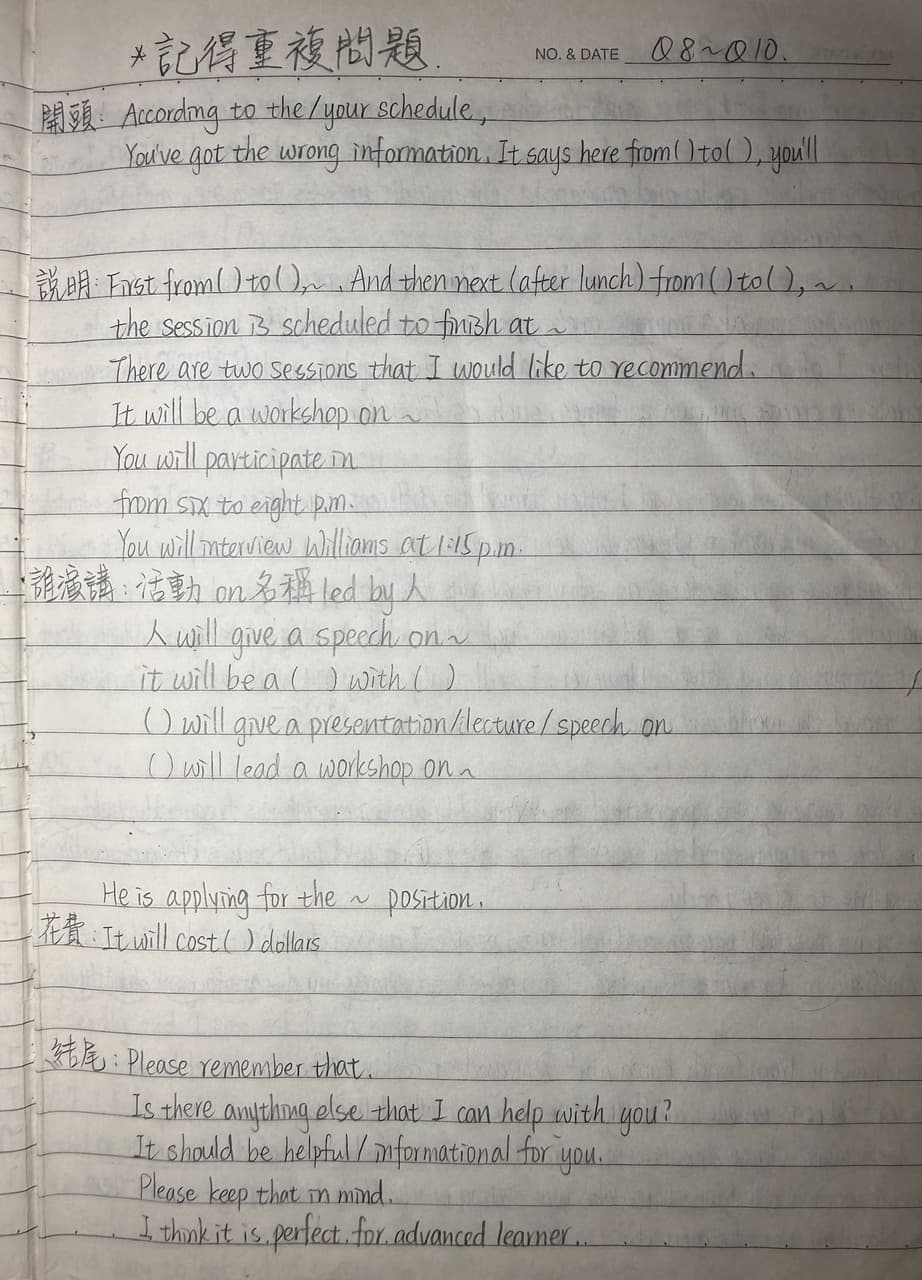 *記得重複問題.
NO. & DATE Q8~Q10.
開頭: According to the/your schedule,
You've got the wrong information. It says here from( )to( ), you'll
説明: First from( )to( ),~. And then next (after lunch) from( )to( ), ~.
the session is scheduled to finish at ~
There are two sessions that I would like to recommend.
It will be a workshop on ~
You will participate in
from six to eight p.m.
You will interview Williams at 1:15 p.m.
誰演講: 活動 on 名稱 led by 人
人 will give a speech on~
it will be a ( ) with ( )
( ) will give a presentation/lecture/speech on
( ) will lead a workshop on~
He is applying for the ~ position.
花費: It will cost( ) dollars
結尾: Please remember that.
Is there anything else that I can help with you?
It should be helpful/informational for you.
Please keep that in mind.
I think it is perfect for advanced learner.